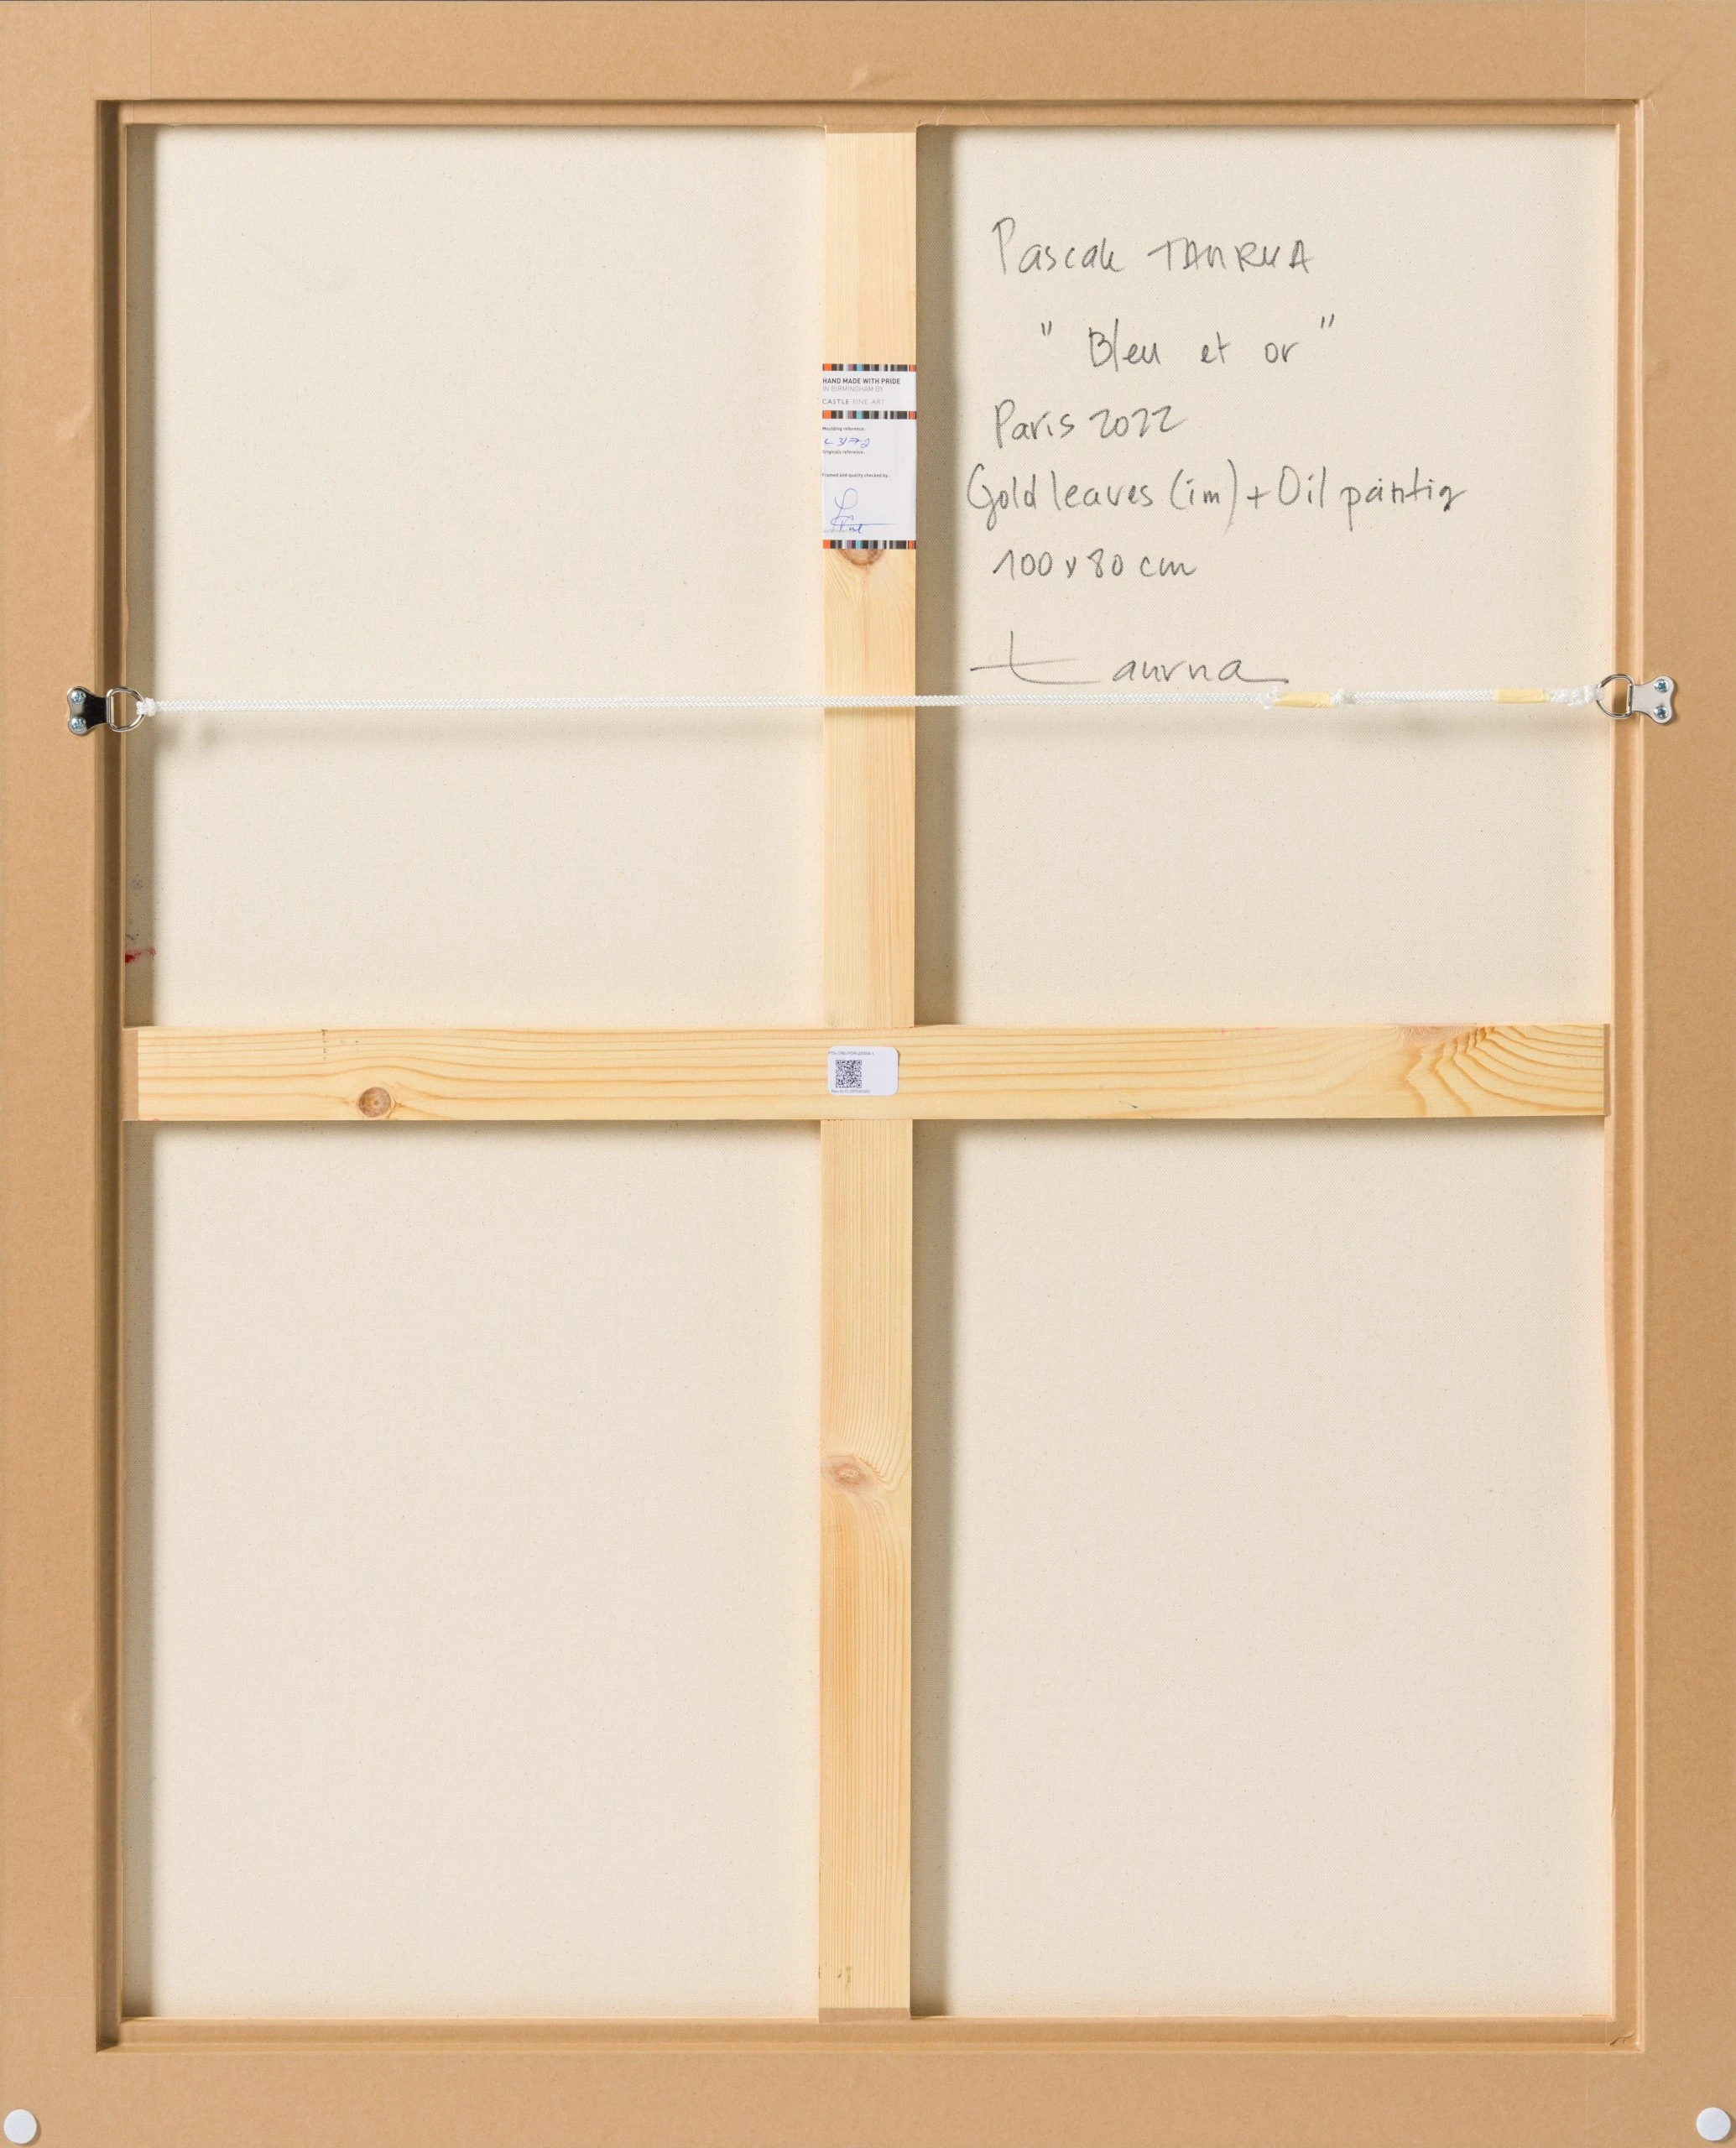 Pascale TAURUA
" Bleu et or "
Paris 2022
Gold leaves (im) + Oil paintig
100 x 80 cm
taurua
HAND MADE WITH PRIDE
IN BIRMINGHAM BY
CASTLE FINE ART
Moulding reference:
Originals reference:
Framed and quality checked by: